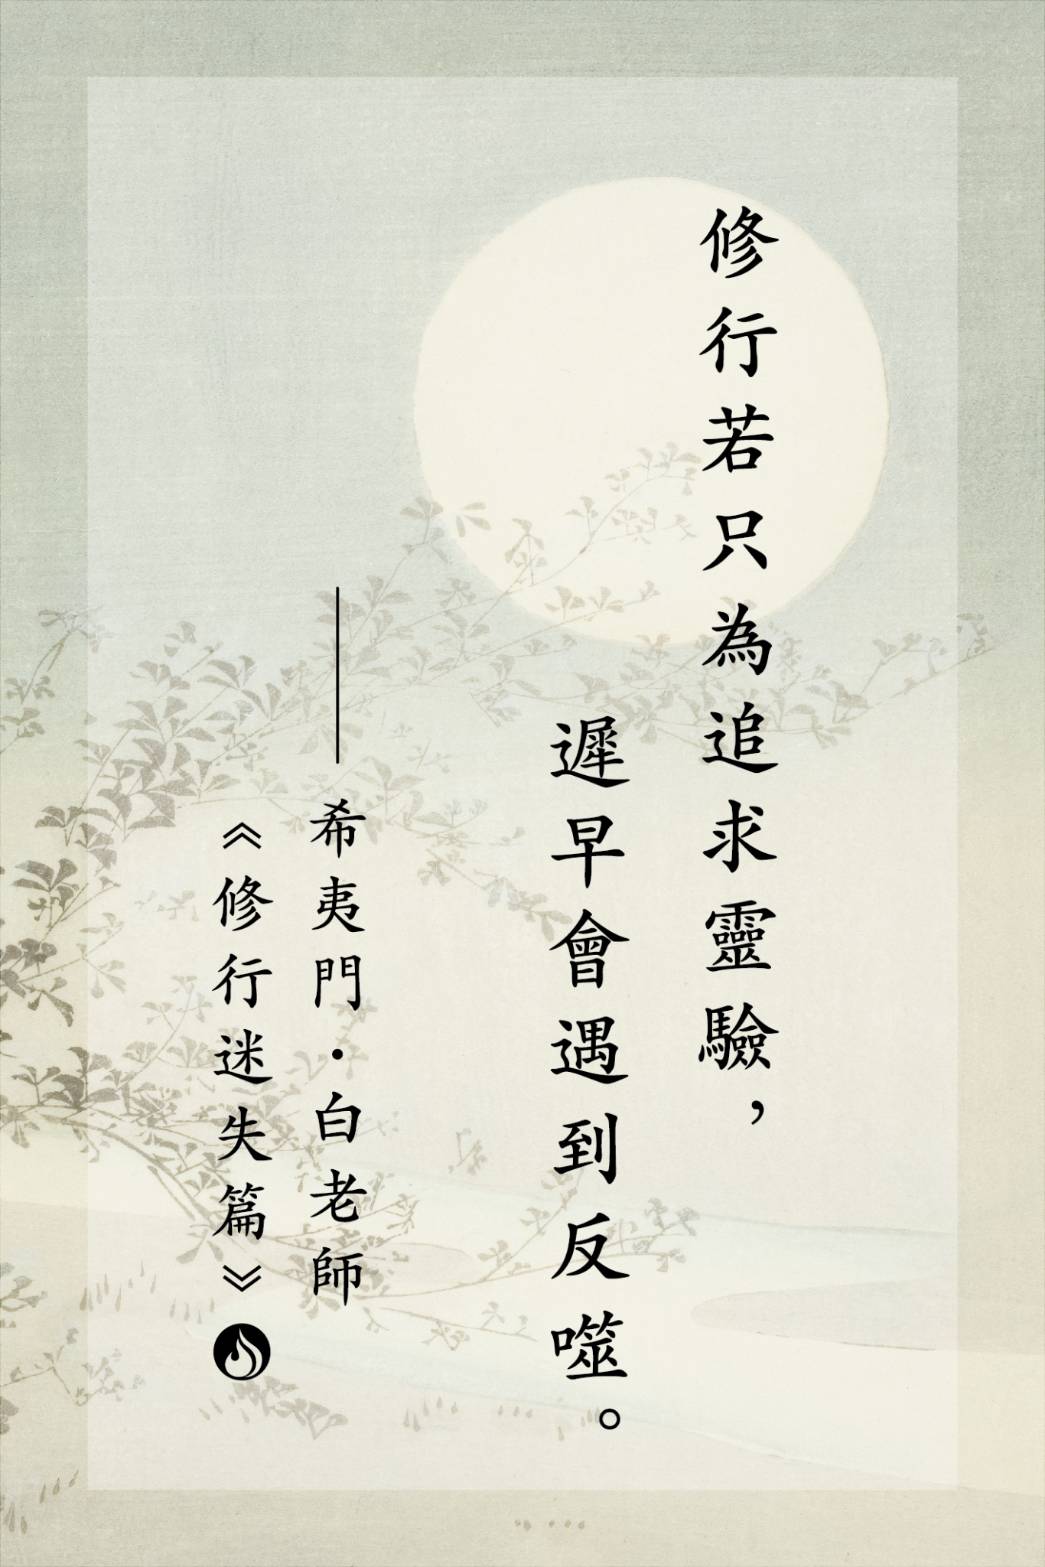 修行若只為追求靈驗，
遲早會遇到反噬。
——希夷門・白老師
《修行迷失篇》